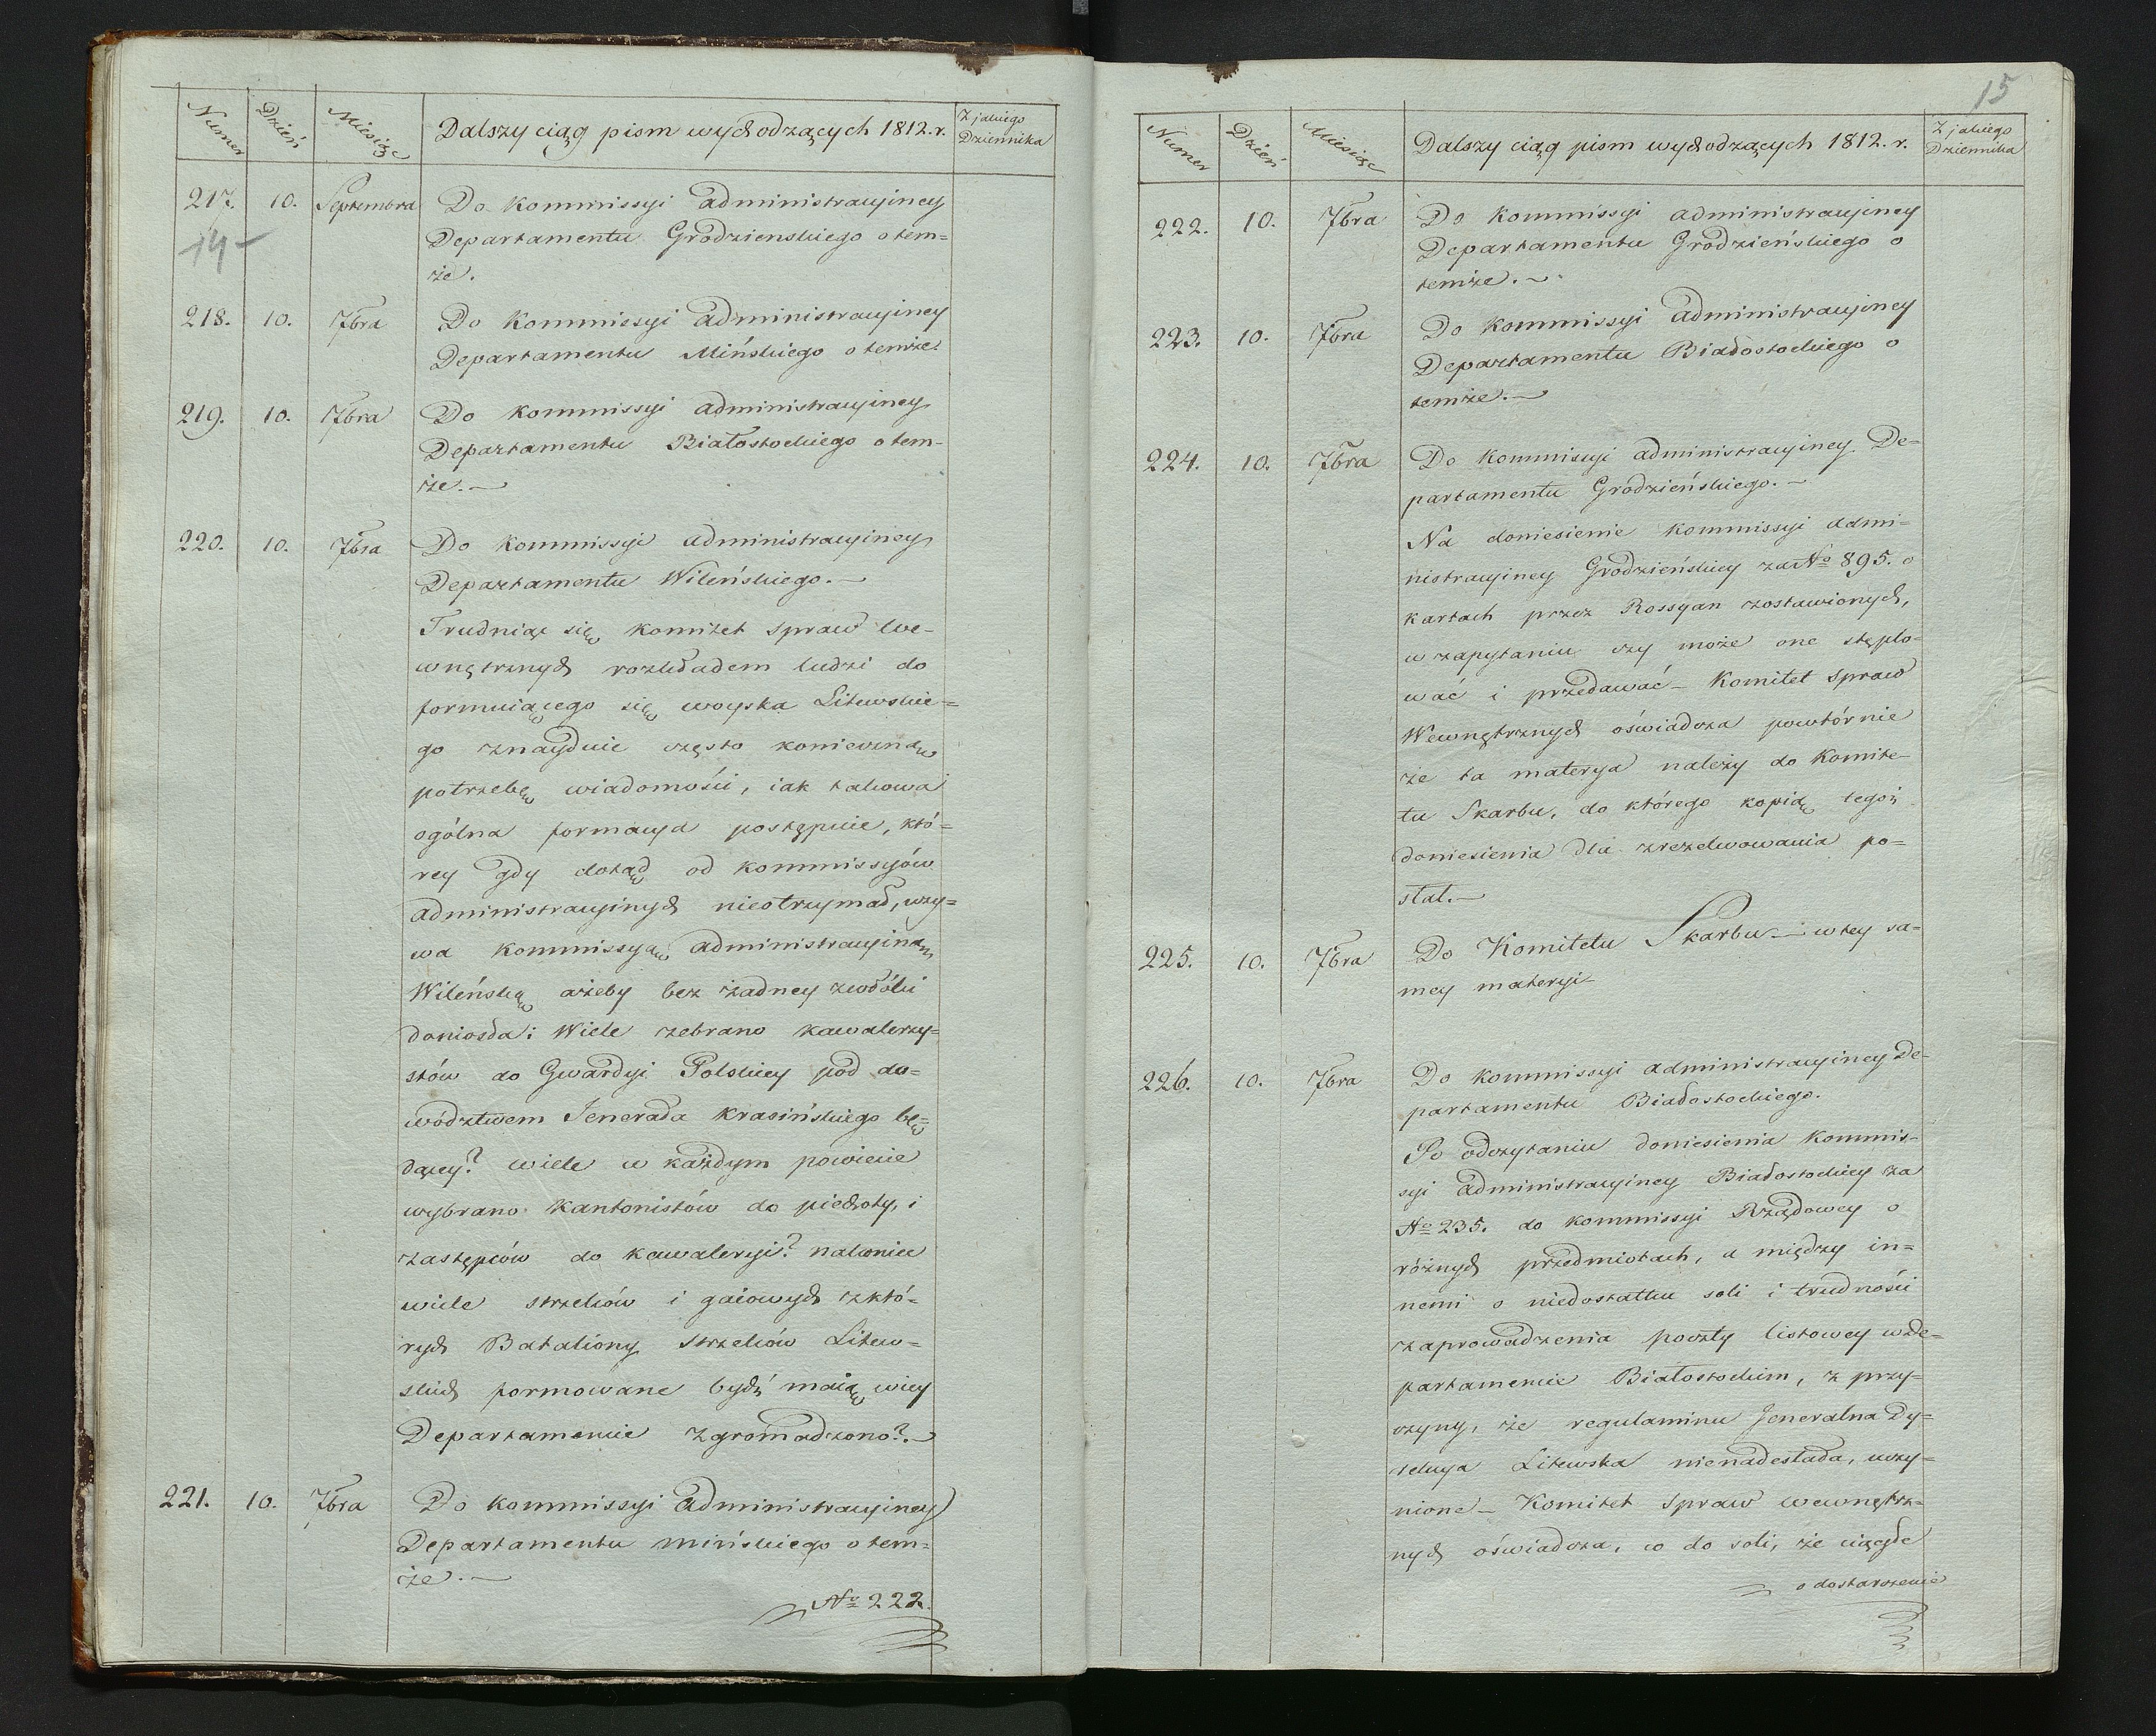 Numer Dzień Miesiąc Dalszy ciąg pism wychodzących 1812. r. Z jakiego
Dziennika
217. 10. Septembra Do Kommissyi administracyiney
14 Departamentu Grodzienskiego o tem=
że.
218. 10. 7bra Do Kommissyi Administracyiney
Departamentu Mińskiego o temże.
219. 10. 7bra Do Kommissyi administracyiney
Departamentu Białostockiego o tem-
że.—
220. 10. 7bra Do Kommissyi administracyiney
Departamentu Wileńskiego.—
Trudniąc się komitet spraw We-
wnętrznych rozkładem ludzi do
formuiącego się woyska Litewskie=
go znayduie często konieczną
potrzebę wiadomości, iak takowa
ogólna formacya postępuie, któ=
rey gdy dotąd od kommissyiów
administracyinych nieotrzymał, wzy=
wa Kommissyą administracyiną
Wileńską ażeby bez żadney zwłóki
doniosła: Wiele zebrano kawalerzy=
stów do Gwardyi Polskiey pod do=
wództwem Jenerała Krasińskiego bę=
dącey? wiele w każdym powiecie
wybrano kantonistów do piechoty, i
zastępców do kawaleryi? nakoniec
wiele strzelców i gaiowych z któ=
rych Bataliony Strzelców Litew=
skich formowane bydź maią w icy
Departamencie zgromadzono?.—
221. 10. 7bra Do kommissyi Administracyiney
Departamentu mińskiego o tem=
że.—
No 222.
15
Numer Dzień Miesiąc Dalszy ciąg pism wychodzących 1812. r. Z jakiego
Dziennika
222. 10. 7bra Do Kommissyi administracyiney
Departamentu Grodzieńskiego o
temże.—
223. 10. 7bra Do Kommissyi Administracyiney
Departamentu Białostockiego o
temże.—
224. 10. 7bra Do Kommissyi administracyiney De=
partamentu Grodzieńskiego.—
Na doniesienie kommissyi admi=
nistracyiney Grodzieńskiey za No 895. o
kartach przez Rossyan zostawionych,
w zapytaniu czy może one stęplo-
wać i przedawać— Komitet Spraw
Wewnętrznych oświadcza powtórnie
że ta materya należy do Komite-
tu Skarbu, do którego kopią tegoż
doniesienia dla zrezolwowania po=
słał.—
225. 10. 7bra Do Komitetu Skarbu— w tey sa-
mey materyi—
226. 10. 7bra Do Kommissyi administracyiney De-
partamentu Białostockiego.
Po odczytaniu doniesienia Kommis-
syi Administracyiney Białostockiey za
No 235. do kommissyi Rządowey o
różnych przedmiotach, a między in=
nemi o niedostatku soli i trudności
zaprowadzenia poczty listowey w De=
partamencie Białostockim, z przy=
czyny, że regulaminu Jeneralna Dy=
rekcya Litewska nienadesłała, uczy=
nione— Komitet Spraw wewnętrz=
nych oświadcza, co do soli, że ciągłe
o dostarczenie